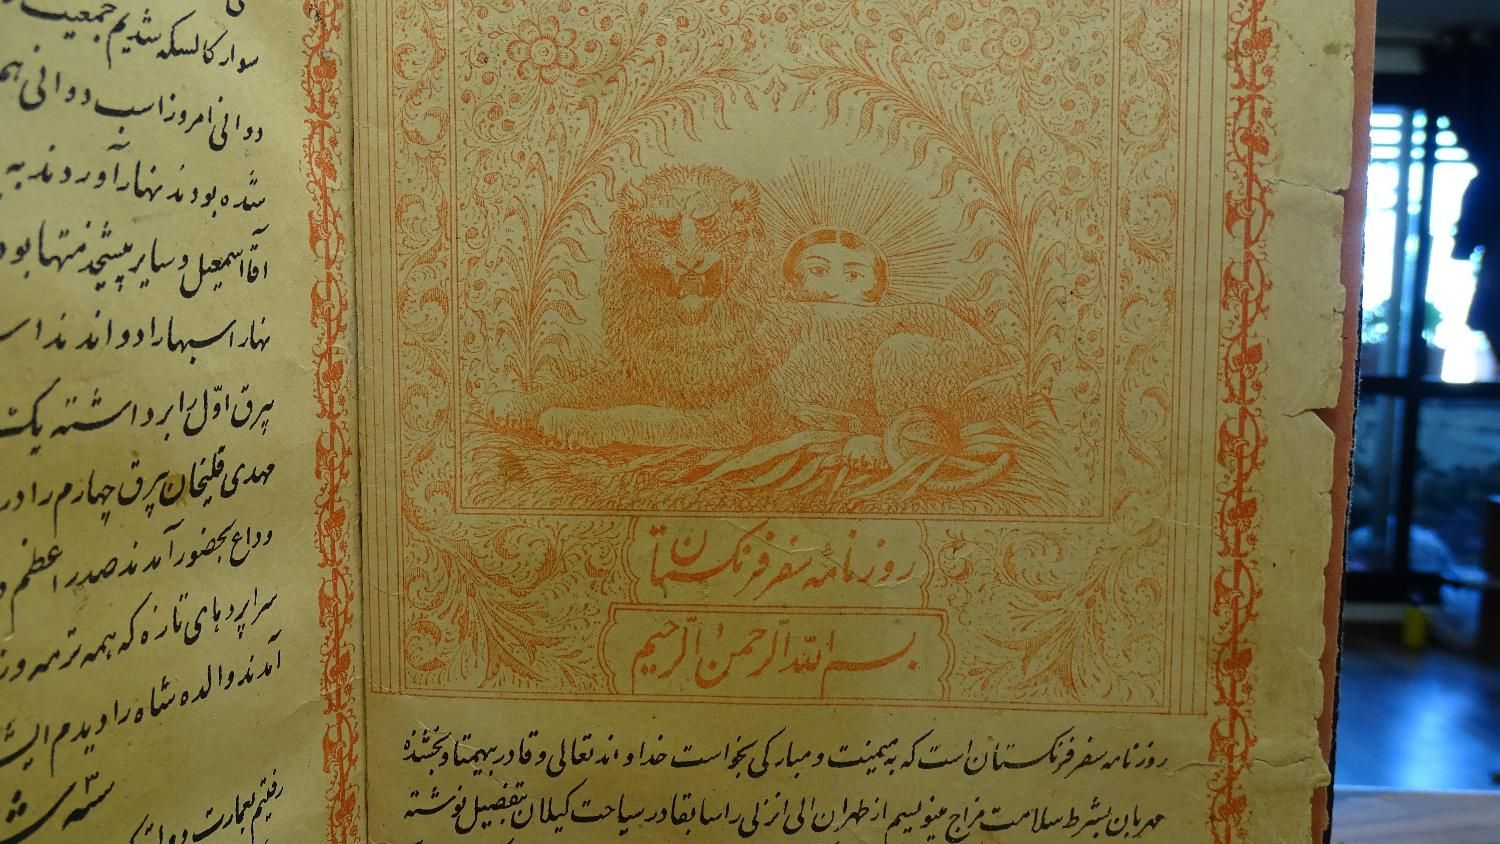 روزنامهٔ سفر فرنگستان
بسم الله الرحمن الرحیم
روزنامه سفر فرنگستان است که به میمنت و مبارکی بخواست خداوند تعالی و قادر بیهمتا و بخشنده
مهربان بشرط سلامت مزاج مینویسیم از طهران الی انزلی را سابقا در سیاحت کیلان بتفضیل نوشته
سوار کالسکه شدیم جمعیت
دوانی امروز اسب دوانی هم
شده بودند نهار آوردند به
آقا اسمعیل و سایر پیشخدمتها بود
نهار اسبها را دواندند
بیرق اوّل را برداشته یک
مهدی قلیخان بیرق چهارم را در
وداع بحضور آمدند صدر اعظم و
سراپردهای تازه که همه ترمه و
آمدند والده شاه را دیدم
رفتیم بعمارت